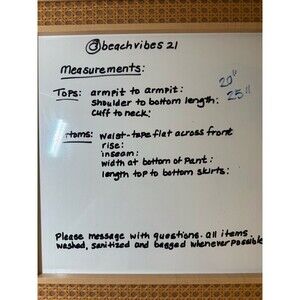 @beachvibes21
Measurements:
Tops: armpit to armpit: 20"
shoulder to bottom length: 25"
cuff to neck:
toms: waist-tape flat across front
rise:
inseam:
width at bottom of pant:
length top to bottom skirts:
Please message with questions. all items
washed, sanitized and bagged whenever possible